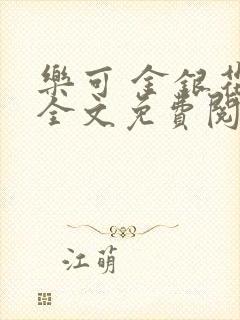 樂可 金銀花
全文免費閱
江萌